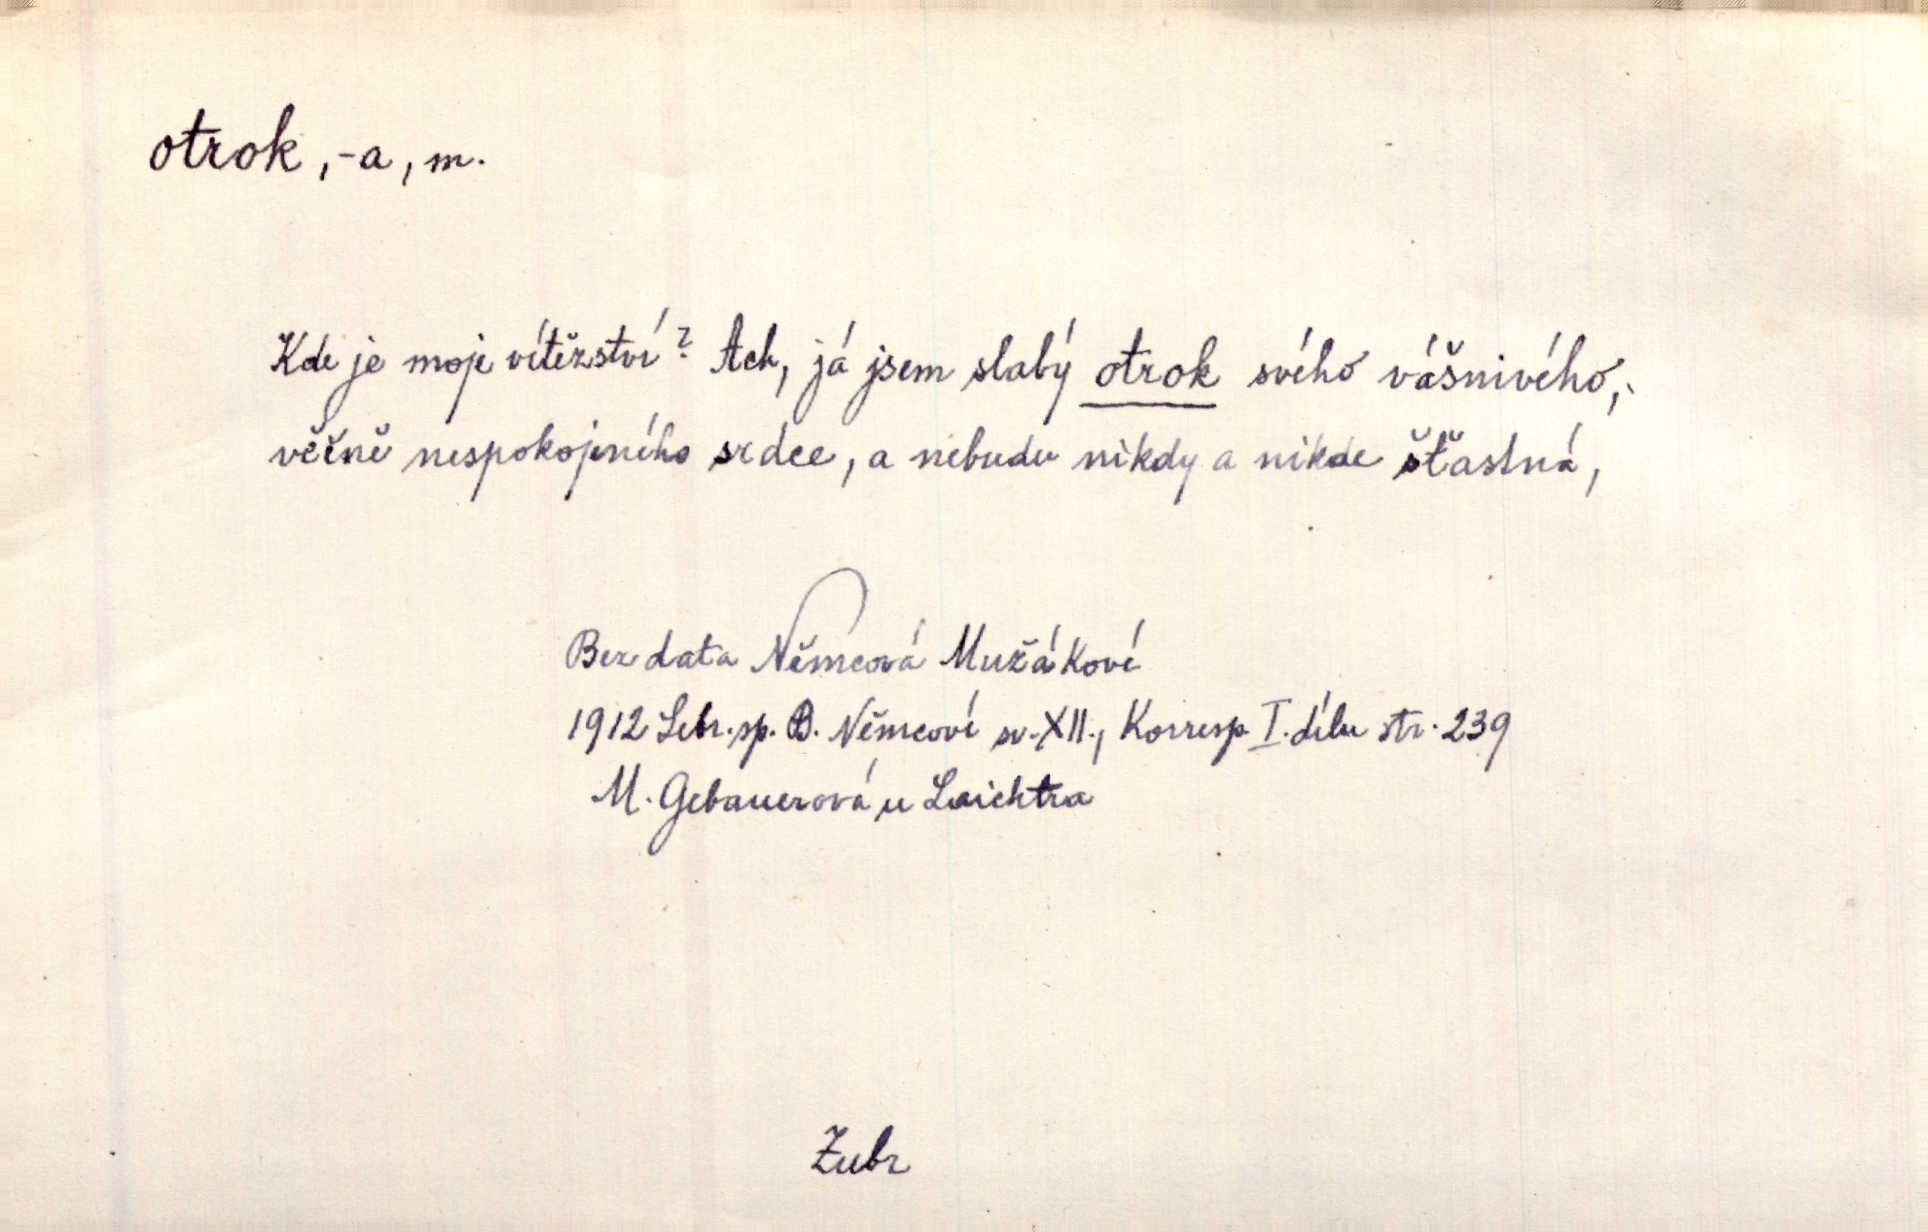 otrok, -a, m.
Kde je moje vítězství? Ach, já jsem slabý otrok svého vášnivého,
věčně nespokojeného srdce, a nebudu nikdy a nikde šťastná,
Bez data Němcová Mužákové
1912 Sebr. sp. B. Němcové sv. XII., Korresp I. dílu str. 239
M. Gebauerová u Laichtra
Zubr